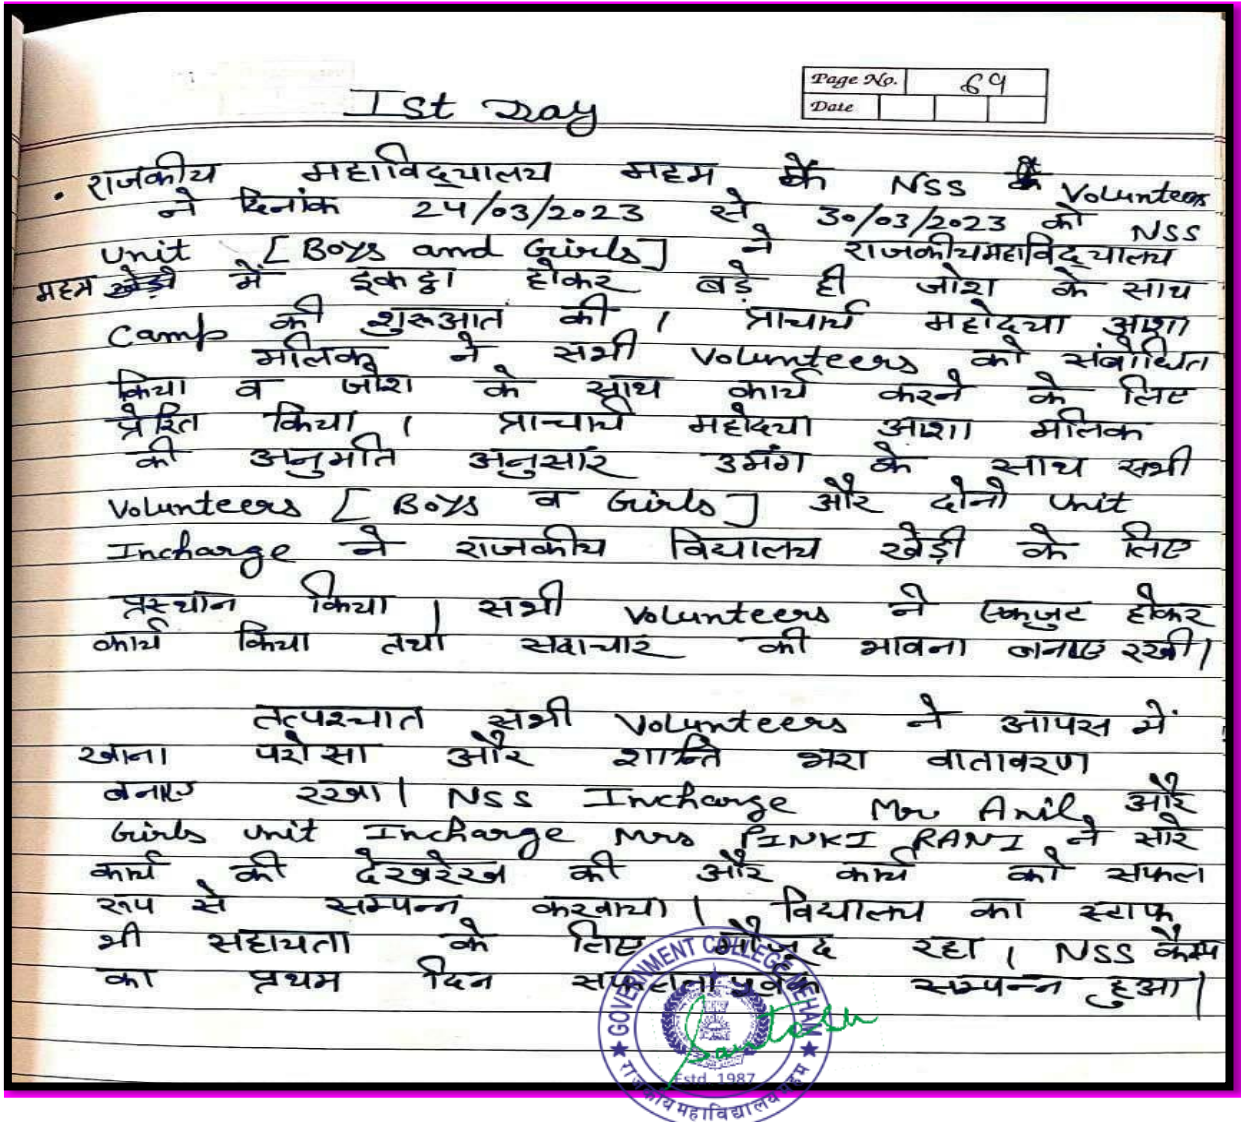 Page No. 69
Date
Ist Day
. राजकीय महाविद्यालय महम के NSS के Volunteers
ने दिनांक 24/03/2023 से 30/03/2023 को NSS
Unit [Boys and Girls] ने राजकीयमहाविद्यालय
महम खेड़ी में इकट्ठा होकर बड़े ही जोश के साथ
Camp की शुरूआत की । प्राचार्य महोदया आशा
मलिक ने सभी Volunteers को संबोधित
किया व जोश के साथ कार्य करने के लिए
प्रेरित किया । प्राचार्य महोदया आशा मलिक
की अनुमति अनुसार उमंग के साथ सभी
Volunteers [Boys व Girls] और दोनो Unit
Incharge ने राजकीय विद्यालय खेड़ी के लिए
प्रस्थान किया । सभी Volunteers ने एकजुट होकर
कार्य किया तथा सदाचार की भावना बनाए रखी।
तत्पश्चात सभी Volunteers ने आपस में
खाना परोसा और शान्ति भरा वातावरण
बनाए रखा। NSS Incharge Mr Anil और
Girls Unit Incharge Mrs PINKI RANI ने सारे
कार्य की देखरेख की और कार्य को सफल
रूप से सम्पन्न करवाया । विद्यालय का स्टाफ
भी सहायता के लिए मौजूद रहा । NSS कैम्प
का प्रथम दिन सफलतापूर्वक सम्पन्न हुआ।
GOVERNMENT COLLEGE MEHAM
Estd. 1987
राजकीय महाविद्यालय महम